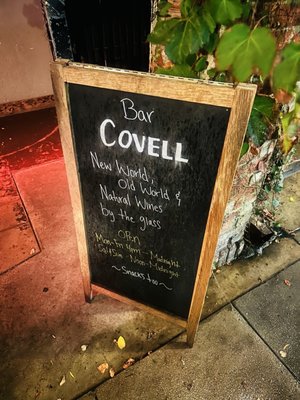 Bar
COVELL
New World,
Old World &
Natural Wines
by the glass
OPEN
Mon-Fri 4pm - Midnight
Sat & Sun Noon - Midnight
~ Snacks too ~